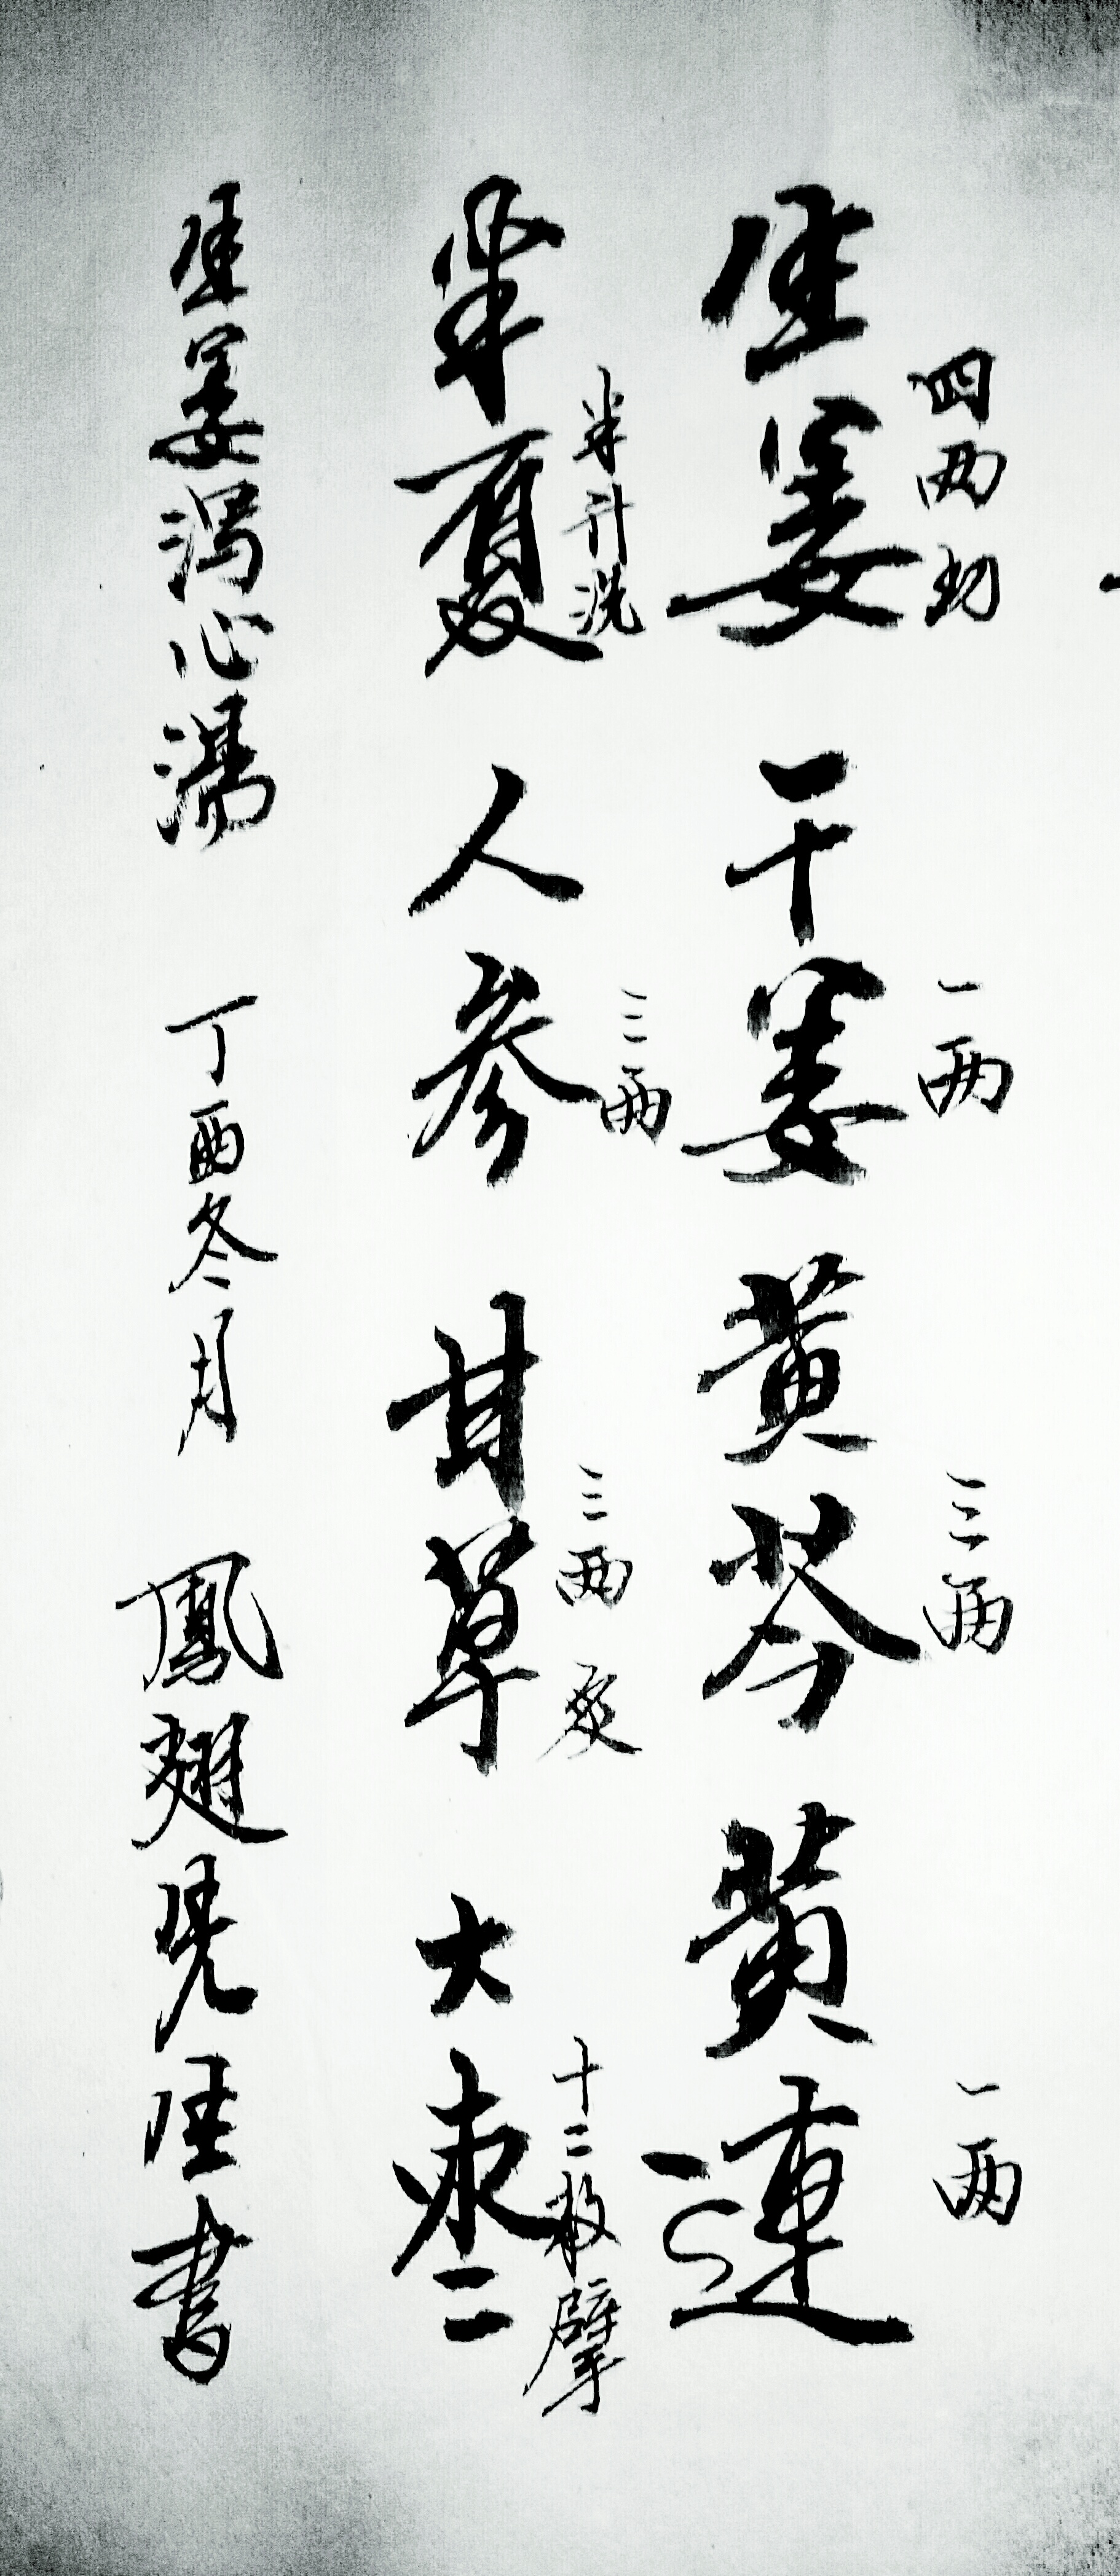 生姜 四两切 干姜 一两 黄芩 三两 黄連 一两
半夏 半升洗 人参 三两 甘草 三两炙 大枣 十二枚擘
生姜瀉心湯 丁酉冬月 鳳翅 先生書